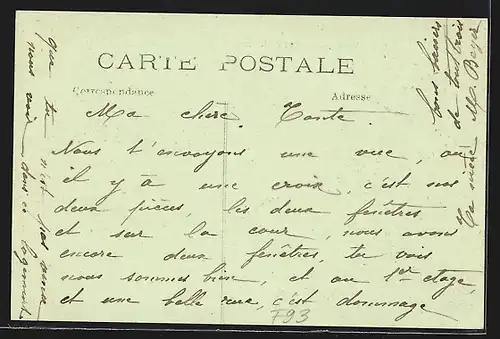 CARTE POSTALE
Correspondance
Adresse
Ma chère Tante.
Nous t'envoyons une vue, ou
il y à une croix, c'est nos
deux pièces, les deux fenêtres
et sur la cour, nous avons
encore deux fenêtres, tu vois
nous sommes bien, et au 1er etage,
et une belle rue, c'est dommage
que tu n'est pas venue
nous voir dans ce logement
bons baisers
de tous trois
Ta nièce M Beyer
F93